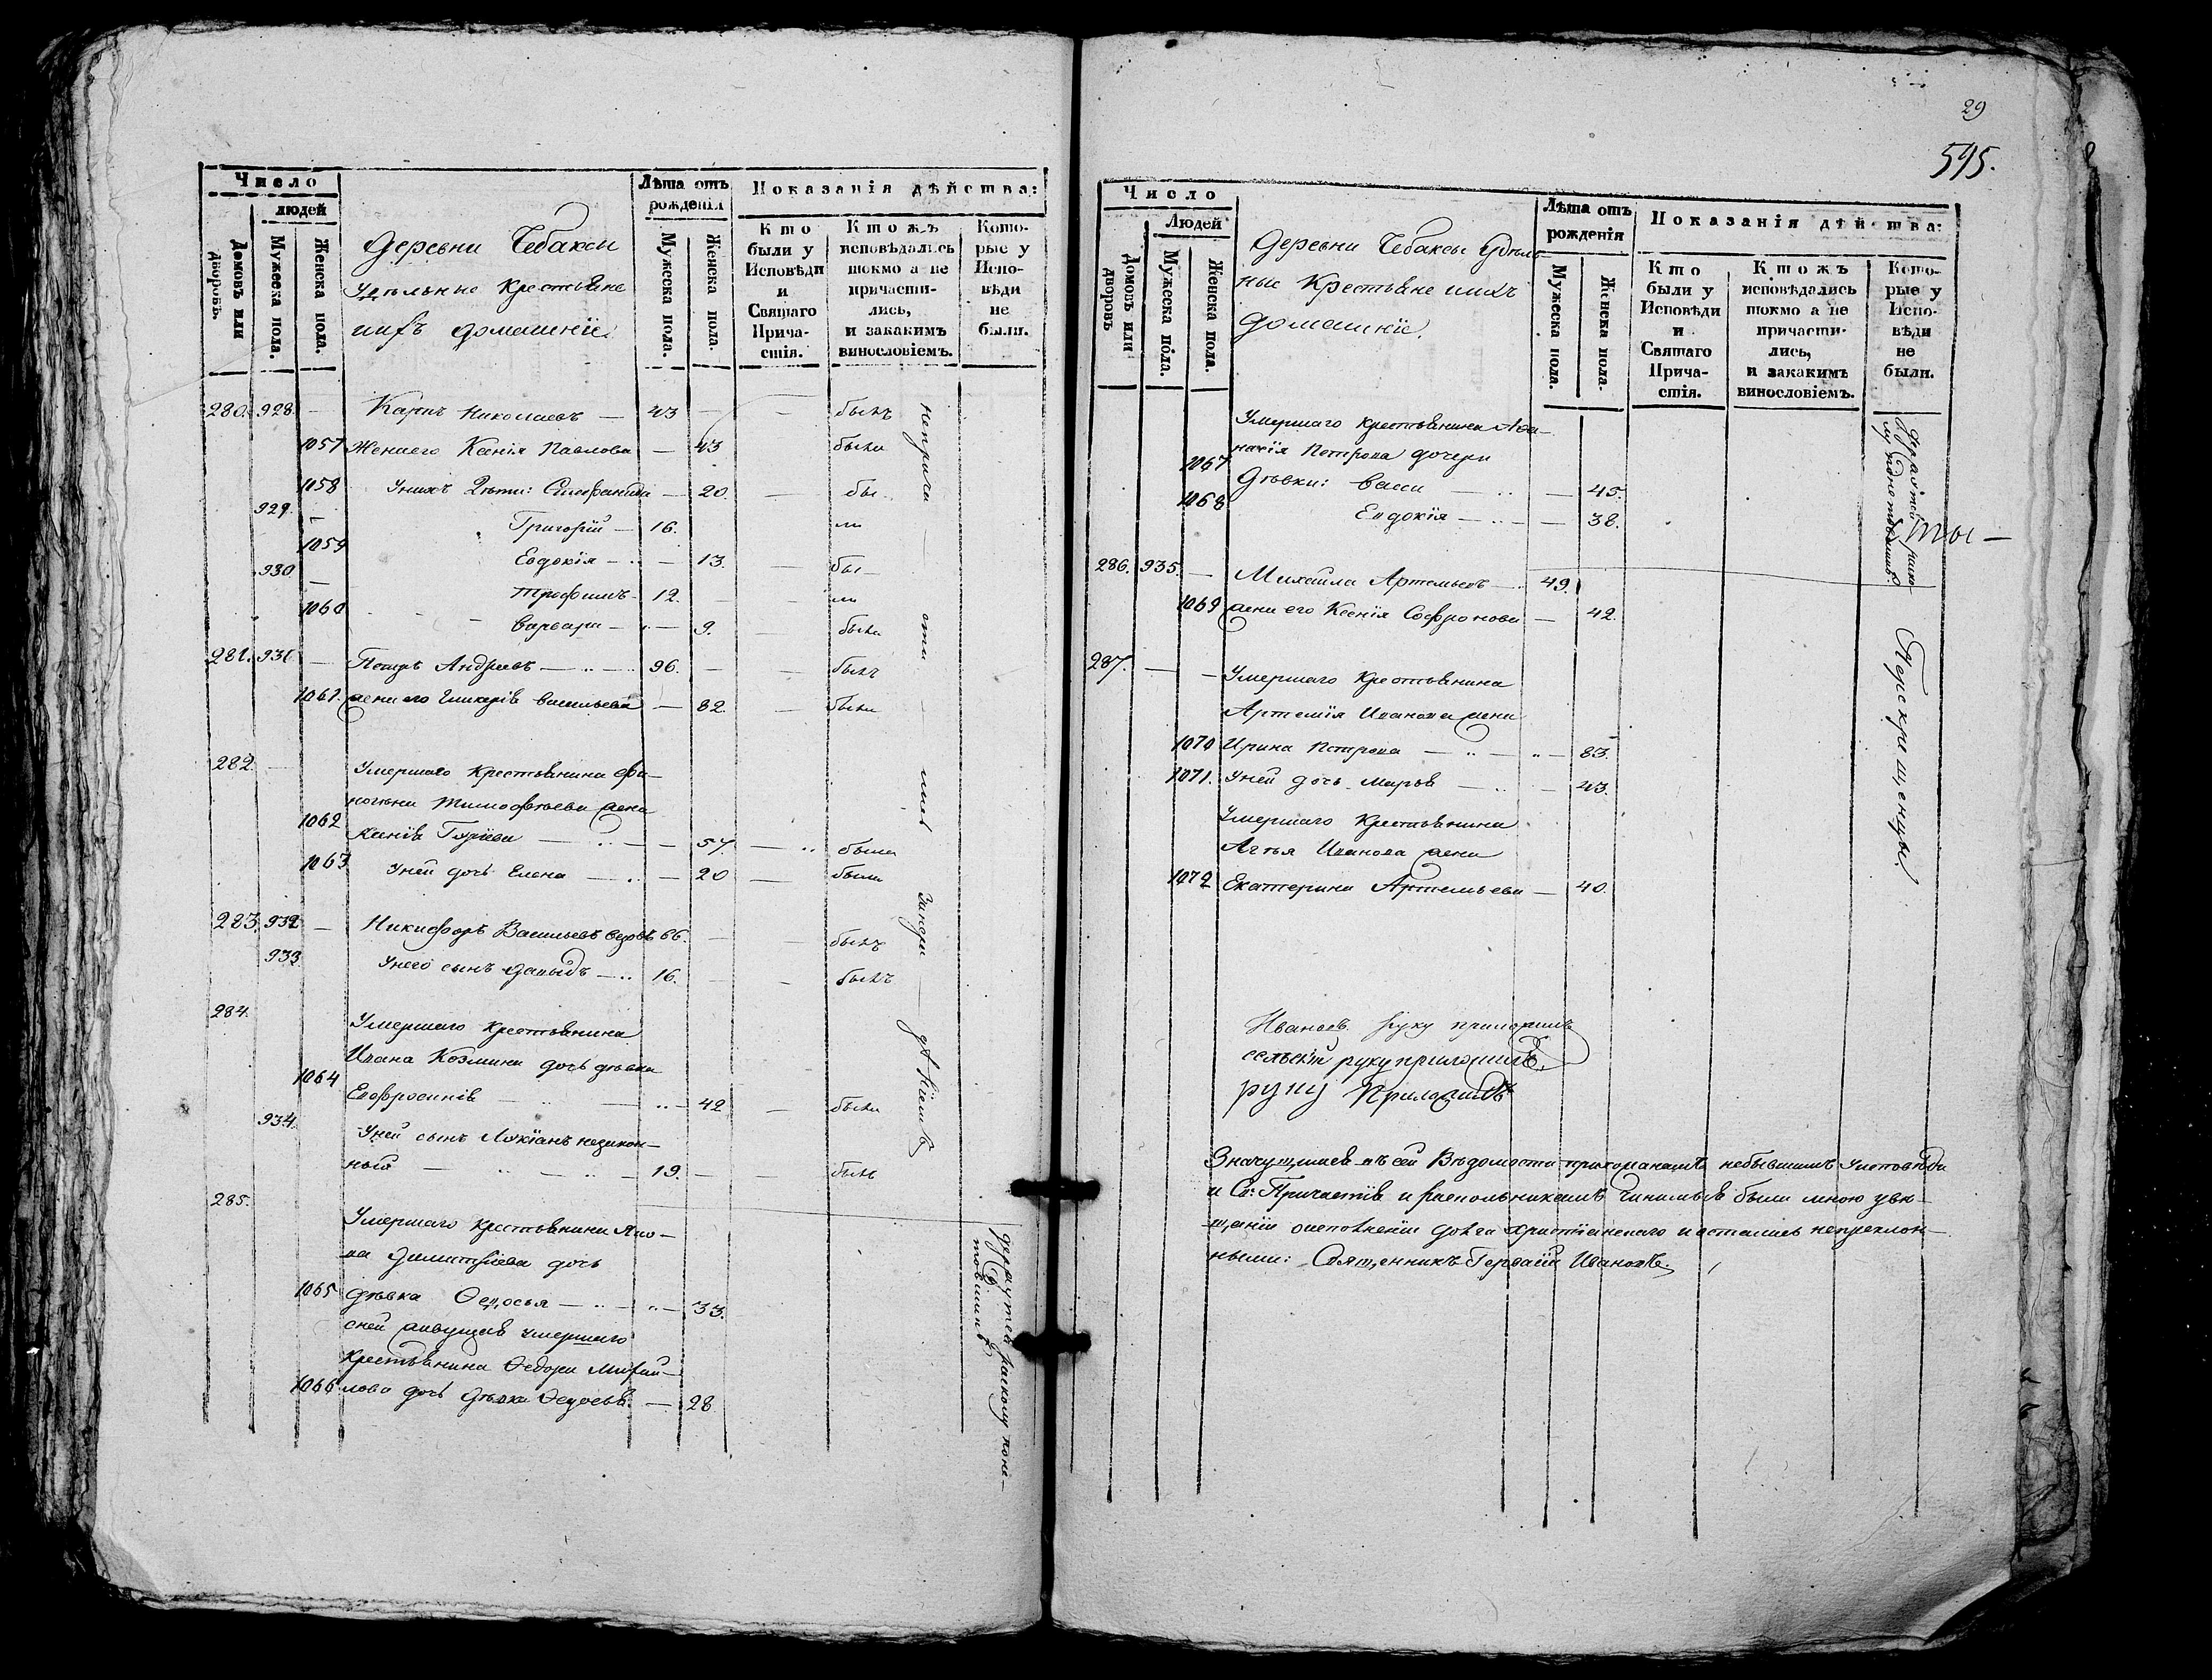 Число
людей
Домовъ или дворовъ.
Мужеска пола.
Женска пола.
Деревни Чебаксы
Удѣльные Крестьяне
ихъ домашніе.
Лѣта отъ рожденія
Мужеска пола.
Женска пола.
Показанія дѣйства:
Кто были у Исповѣди и Святаго Причастія.
Ктожъ исповѣдались токмо а не причастились, и закакимъ винословіемъ.
Которые у Исповѣди не были.
280. 928. — Карпъ Николаевъ — 43 — — былъ
1057 Жена его Ксенія Павлова — 43 была
1058 У нихъ Дѣти: — 20. — бы
929. — Григорій — 16. ли
1059 Евдокія — 13. — бы
930 — Трофимъ — 12. — ли
1060 Варвара — 9. была
281. 931 — Петръ Андреевъ — 96. — — былъ
1061. жена его Гликерія Васильева — 82. — была
282. — Умершаго крестьянина
Тимофѣева жена
1062 Ксенія — 57. — была
1063 У ней дочь Елена — 20 — была
283. 932 — Никифоръ Васильевъ вдовъ 66. — — былъ
933. У него сынъ Давыдъ — 16. — — былъ
284. Умершаго крестьянина
Ивана Козмина дочь дѣвка
1064 Евфросинія — 42 — была
934. У ней сынъ Лукіанъ незакон-
ный — 19. — — былъ
285. Умершаго крестьянина Яко-
ва Димитріева дочь
1065 дѣвка Ѳедосья — 33.
с ней живущая умершаго
крестьянина Ѳедора Михай-
1066 лова дочь дѣвка Ѳедосья. — 28
держутся расколу поне-
29
595.
Число
Людей
Домовъ или дворовъ
Мужеска пола.
Женска пола.
Деревни Чебаксы Удѣль-
ные Крестьяне и ихъ
домашніе.
Лѣта отъ рожденія
Мужеска пола.
Женска пола.
Показанія дѣйства:
Кто были у Исповѣди и Святаго Причастія.
Ктожъ исповѣдались токмо а не причастились, и закакимъ винословіемъ.
Которые у Исповѣди не были.
Умершаго крестьянина Аѳа-
насія Петрова дочери
1067 Дѣвки: Васса — 45.
1068 Евдокія — 38.
286. 935. — Михайла Артемьевъ — 49.
1069 жена его Ксенія Софронова — 42.
287. — — Умершаго крестьянина
Артемія Иванова жена
1070 Ирина Петрова — 83.
1071. У ней дочь Марья — 43.
Умершаго Крестьянина
Иванова жена
1072 Екатерина Артемьева — 40.
Перекрещенцы.
Ивановъ руку приложилъ
руку приложилъ,
руку Приложилъ
Значущимся въ сей Вѣдомости прихожанамъ небывшимъ у исповѣди
и Св: Причастія и раскольникамъ чинимы были мною увѣ-
щаніи о исполненіи долга христіанскаго и остались непреклон-
ными: Священникъ Гервасій Ивановъ.